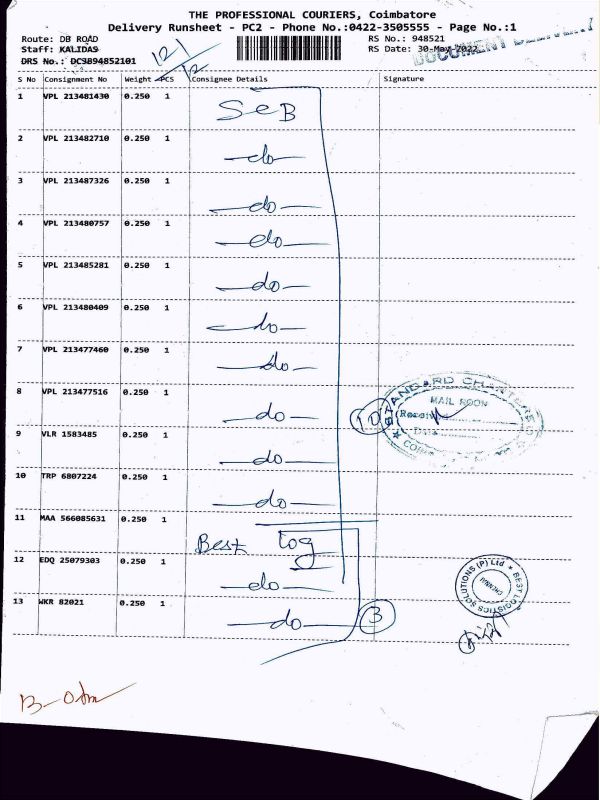 THE PROFESSIONAL COURIERS, Coimbatore
Delivery Runsheet - PC2 - Phone No.:0422-3505555 - Page No.:1
Route: DB ROAD
RS No.: 948521
Staff: KALIDAS
RS Date: 30-May-2022
DRS No.: DCS894852101
DOCUMENT DELIVERY
12/
12
S No Consignment No Weight PCS Consignee Details Signature
1 VPL 213481430 0.250 1 SeB
2 VPL 213482710 0.250 1 —do—
3 VPL 213487326 0.250 1 —do—
4 VPL 213480757 0.250 1 —do—
5 VPL 213485281 0.250 1 —do—
6 VPL 213480409 0.250 1 —do—
7 VPL 213477460 0.250 1 —do—
8 VPL 213477516 0.250 1 —do—
10
STANDARD CHARTERED
MAIL ROOM
9 VLR 1583485 0.250 1 —do—
10 TRP 6807224 0.250 1 —do—
11 MAA 566085631 0.250 1 Best log
12 EDQ 25079303 0.250 1 —do—
BEST LOGISTICS SOLUTIONS (P) Ltd
CHENNAI
13 WKR 82021 0.250 1 —do—
3